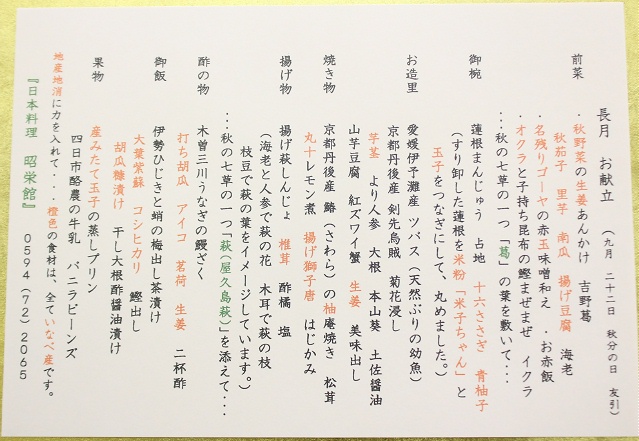 長月 お献立 (九月 二十二日 秋分の日 友引)
前菜 ・秋野菜の生姜あんかけ 吉野葛
秋茄子 里芋 南瓜 揚げ豆腐 海老
・名残りゴーヤの赤玉味噌和え ・お赤飯
・オクラと子持ち昆布の鰹まぜまぜ イクラ
・・・秋の七草の一つ「葛」の葉を敷いて・・・
御椀 蓮根まんじゅう 占地 十六ささぎ 青柚子
(すり卸した蓮根を米粉「米子ちゃん」と
玉子をつなぎにして、丸めました。)
お造里 愛媛伊予灘産 ツバス(天然ぶりの幼魚)
京都丹後産 剣先烏賊 菊花浸し
芋茎 より人参 大根 本山葵 土佐醤油
山芋豆腐 紅ズワイ蟹 生姜 美味出し
焼き物 京都丹後産 鰆(さわら)の柚庵焼き 松茸
丸十レモン煮 揚げ獅子唐 はじかみ
揚げ物 揚げ萩しんじょ 椎茸 酢橘 塩
(海老と人参で萩の花 木耳で萩の枝
枝豆で萩の葉をイメージしています。)
・・・秋の七草の一つ「萩(屋久島萩)」を添えて・・・
酢の物 木曽三川うなぎの鰻ざく
打ち胡瓜 アイコ 茗荷 生姜 二杯酢
御飯 伊勢ひじきと蛸の梅出し茶漬け
大葉紫蘇 コシヒカリ 鰹出し
胡瓜糠漬け 干し大根酢醤油漬け
果物 産みたて玉子の蒸しプリン
四日市酪農の牛乳 バニラビーンズ
地産地消に力を入れて・・・橙色の食材は、全ていなべ産です。
『日本料理 昭栄館』 0594(72)2065